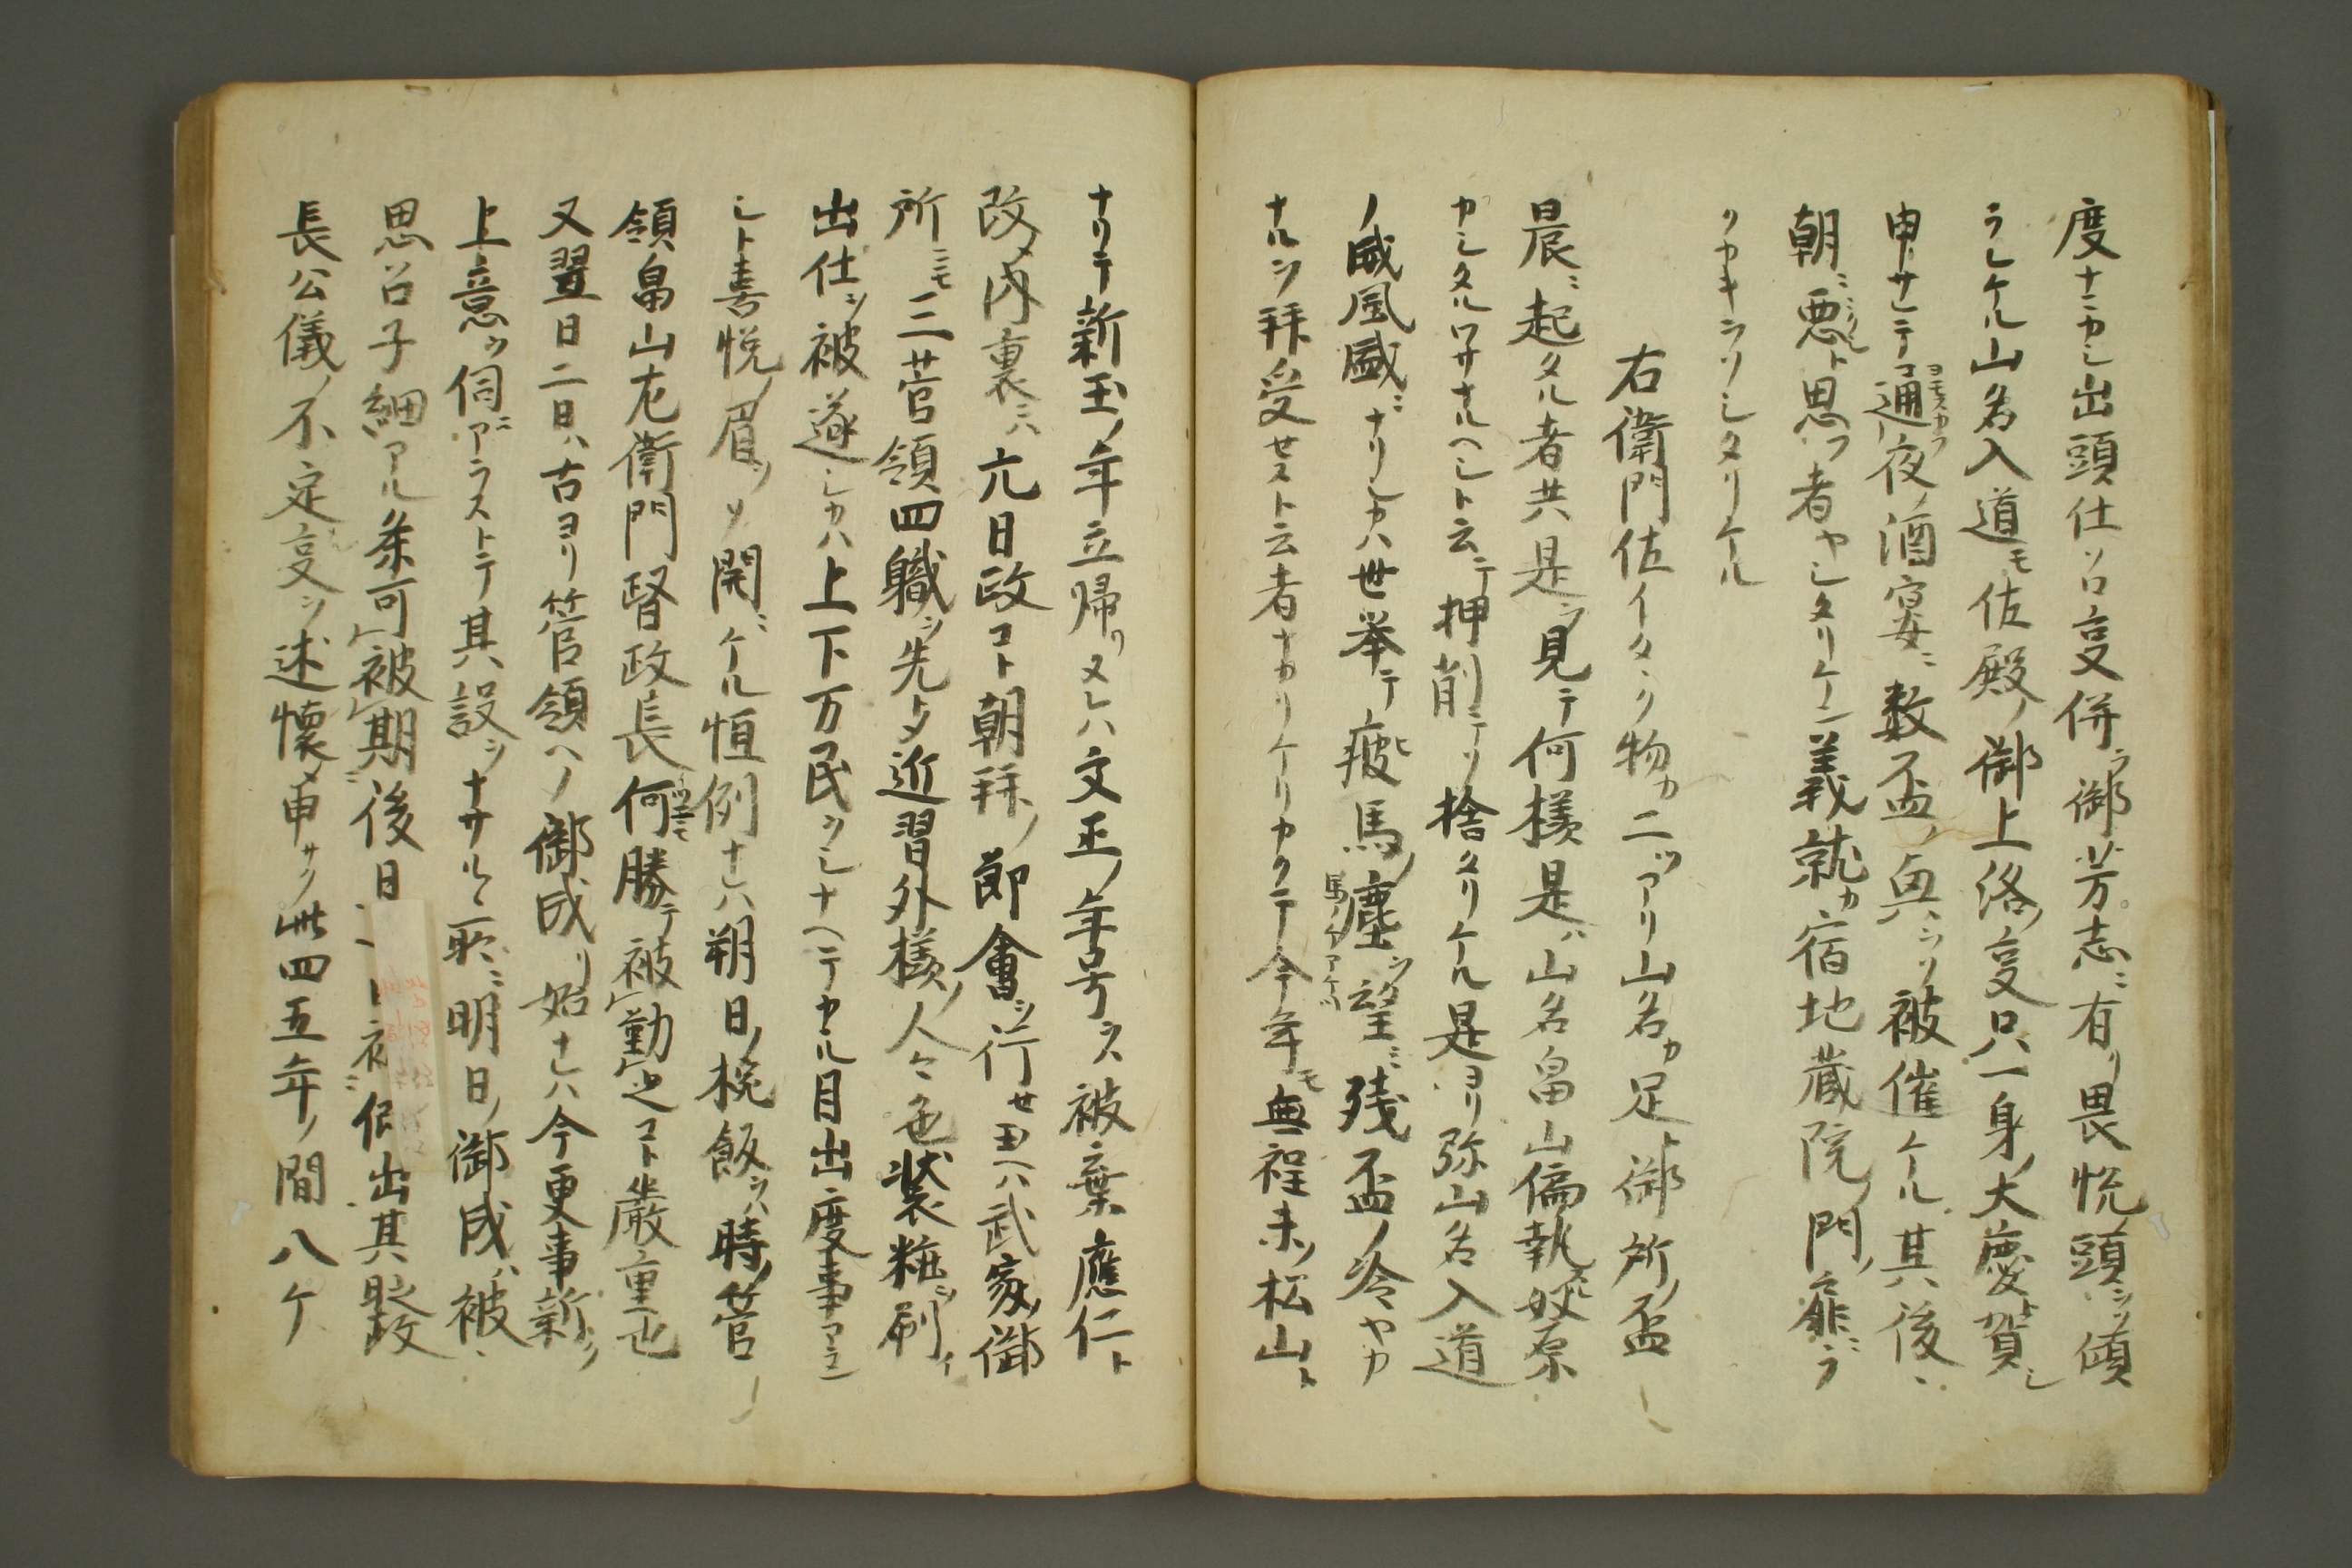 度ナニカシ出頭仕ソロ叓併ラ御芳志ニ有リ畏悦頭ヲソ傾
ラレケル山名入道モ佐殿ノ御上洛ノ叓只一身ノ大慶ト賀シ
申サレテ通夜ノ酒宴ニ数盃ノ興ヲソ被催ケル其後ハ
朝ニ悪シト思フ者ヤシタリケン義就カ宿地蔵院ノ門ノ扉ニラ
リカキシリシタリケル
右衛門佐イタヽク物カ二ツアリ山名カ足ト御所ノ盃
晨ニ起タル者共是ヲ見テ何様是ハ山名畠山偏執ノ奴原
カシタルワサナルヘシト云テ押削テソ捨タリケル是ヨリ弥山名入道
ノ威風盛ニナリシカハ世挙テ疲馬ノ塵ヲ望ミ残盃ノ冷ヤカ
ナルヲ拝受セスト云者ナカリケリカクテ今年モ無程末ノ松山ト
ナリテ新玉ノ年立帰リヌレハ文正ノ年号ヲハ被棄應仁ト
改メ内裏ニハ元日政コト朝拝ノ節會ヲ行セ玉ヘハ武家ノ御
所ニモ三菅領四職ヲ先トシタ近習外様ノ人々色装粧ヲ刷イ
出仕ヲ被遂シカハ上下万民ヲシナヘテカヽル目出度事アラン
シト喜悦ノ眉ヲソ開ニケル恒例ナレハ朔日ノ椀飯ヲハ時ノ管
領畠山左衛門督政長何ニモ勝テ被勤之コト嚴重也
又翌日二日ハ古ヨリ管領ヘノ御成リ始ナレハ今更事新ク
上意ヲ伺ニアラストテ其設ヲナサルヽ耴ニ明日ノ御成ハ被
思召子細アル条可被期後日 出其𠷣政
長公儀ノ不定叓ヲ述懐メ申サク此四五年ノ間八ケ